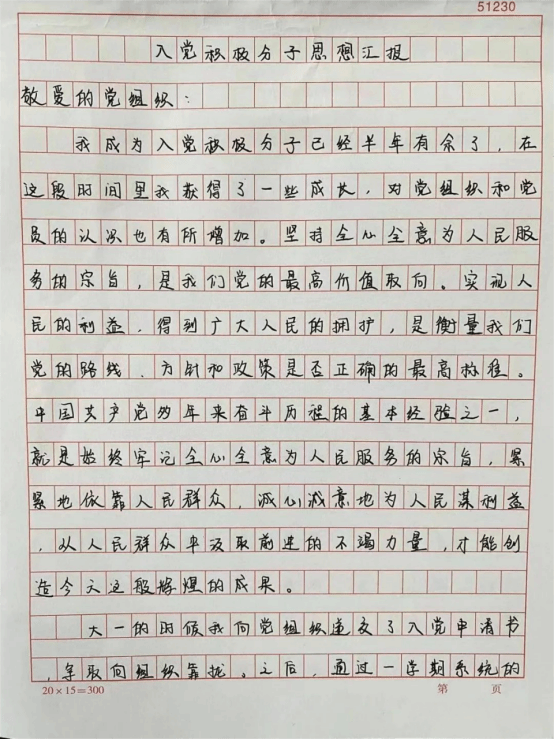 51230
入党积极分子思想汇报
敬爱的党组织：
我成为入党积极分子已经半年有余了，在
这段时间里我获得了一些成长，对党组织和党
员的认识也有所增加。坚持全心全意为人民服
务的宗旨，是我们党的最高价值取向。实现人
民的利益，得到广大人民的拥护，是衡量我们
党的路线、方针和政策是否正确的最高标准。
中国共产党多年来奋斗历程的基本经验之一，
就是始终牢记全心全意为人民服务的宗旨，紧
紧地依靠人民群众，诚心诚意地为人民谋利益
，从人民群众中汲取前进的不竭力量，才能创
造今天这般辉煌的成果。
大一的时候我向党组织递交了入党申请书
，争取向组织靠拢。之后，通过一学期系统的
20×15=300 第 页